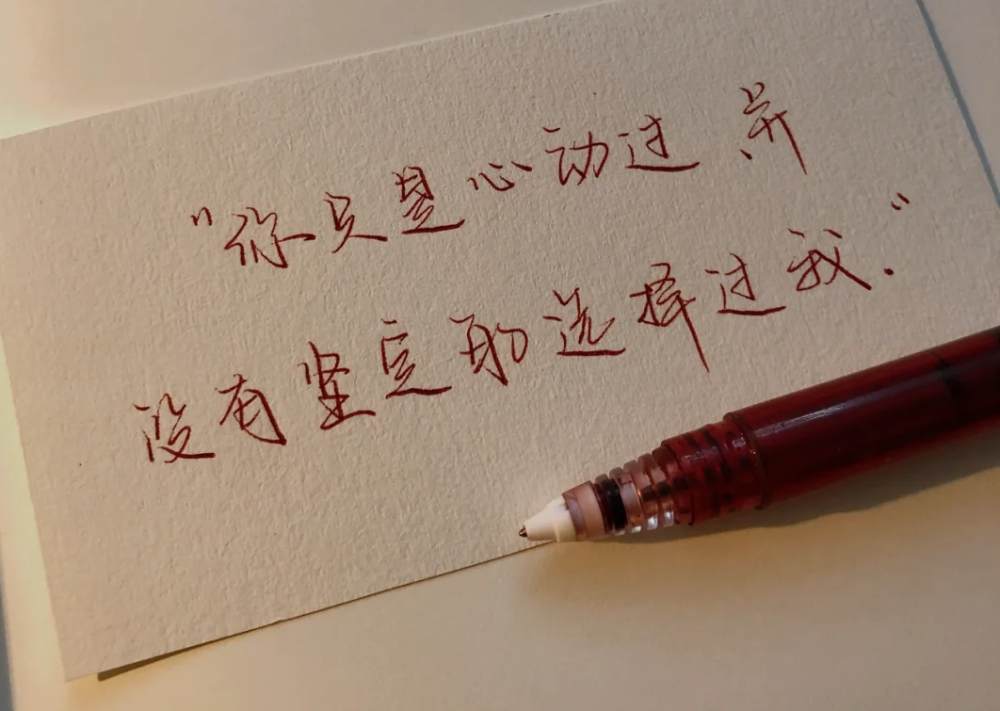 "你只是心动过 并
没有坚定的选择过我."